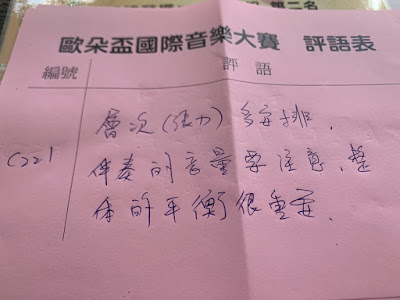 第二名
歐朵盃國際音樂大賽 評語表
編號 評語
C221 層次(張力)多安排,
伴奏的音量要注意、整
体的平衡很重要、